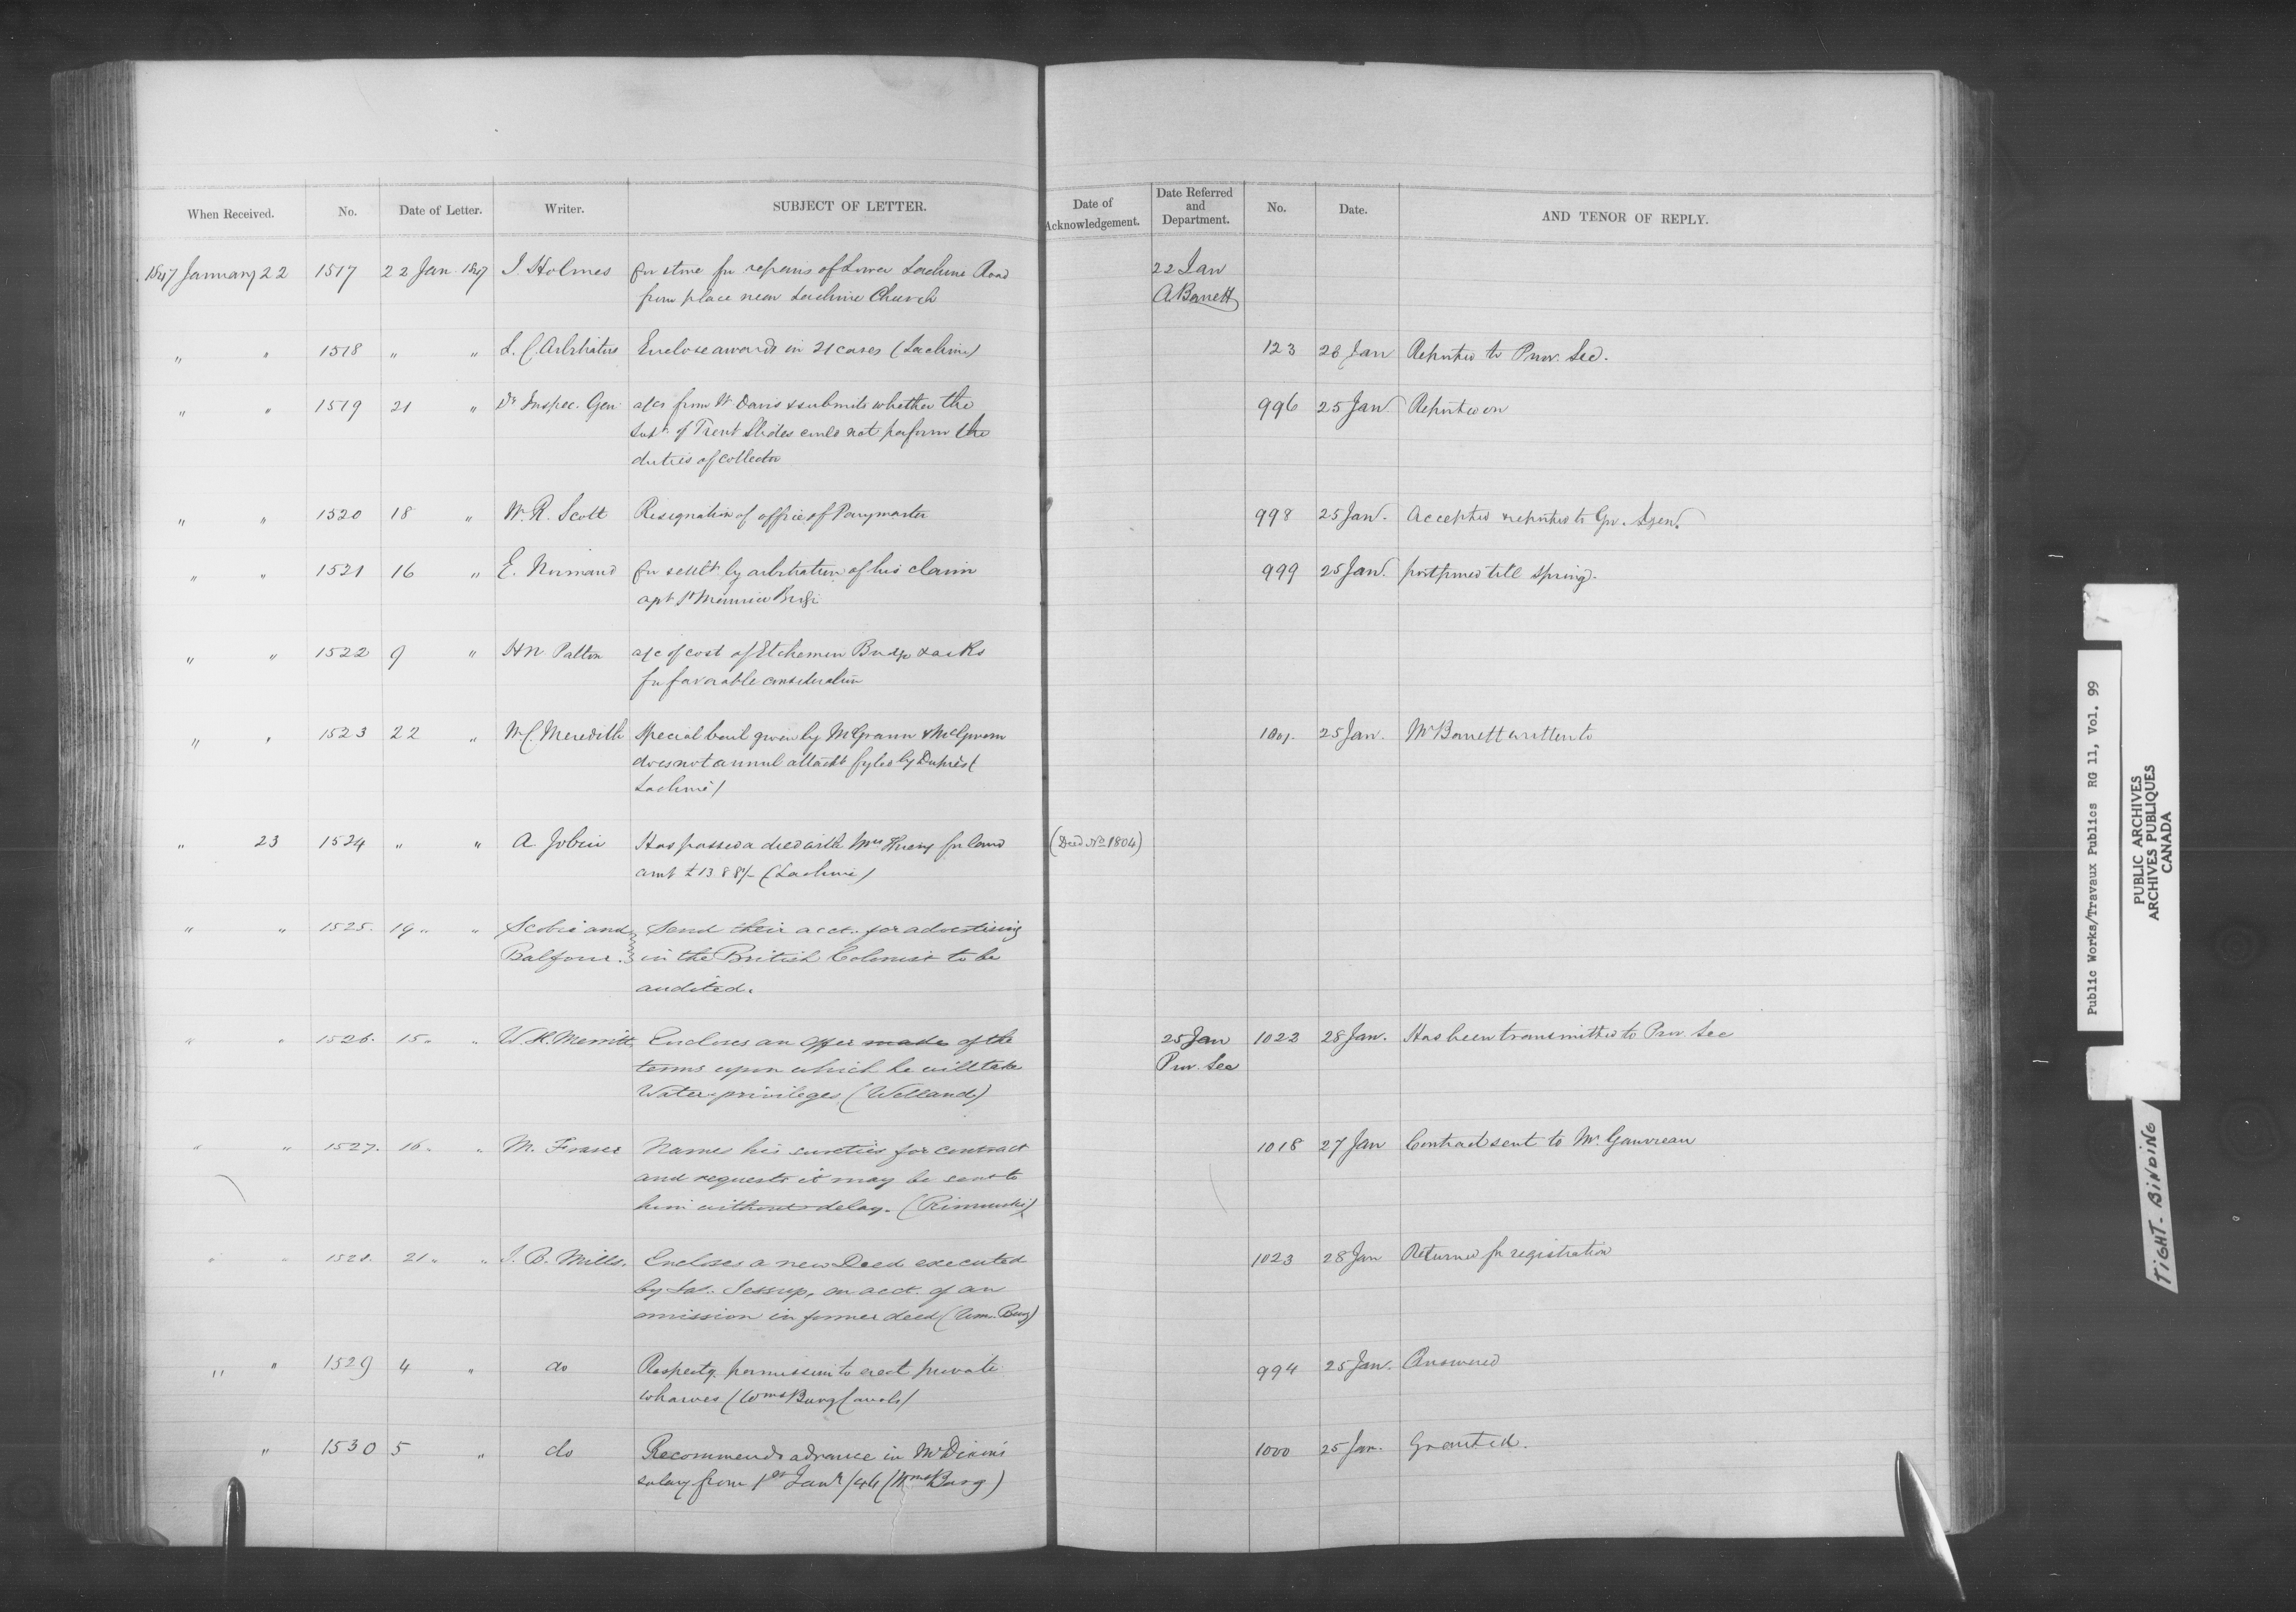 When Received. No. Date of Letter. Writer. SUBJECT OF LETTER. Date of Acknowledgement. Date Referred and Department. No. Date. AND TENOR OF REPLY.
1847 January 22 1517 22 Jan 1847 J. Holmes for stone for repairs of Lower Lachine Road 22 Jan
from place near Lachine Church A Barrett
" " 1518 " " L. C. Arbitrators Enclose awards in 21 cases (Lachine) 123 28 Jan Reported to Prov. Sec.
" " 1519 21 " Dy Inspec. Gen a/cs from W Davis & submits whether the 996 25 Jan Reported on
Supt. of Trent Slides could not perform the
duties of collector
" " 1520 18 " W. R. Scott Resignation of office of Paymaster 998 25 Jan. Accepted & reported to Gov. Gen.
" " 1521 16 " E. Normand for settlt. by arbitration of his claim 999 25 Jan. postponed till Spring.
agst St Maurice Bridge
" " 1522 9 " H N Patton a/c of cost of Etchemin Bridge & asks
for favorable consideration
" " 1523 22 " W C. Meredith Special bail given by McGrann & McGovern 1001. 25 Jan. Mr Barrett written to
does not annul attacht fyled by Dupuis (
Lachine)
" 23 1524 " " A Jobin Has passed a deed with Mrs for land (Deed No 1804)
amt £1388/- (Lachine)
" " 1525. 19 " " Scobie and Send their acct. for advertising
Balfour. in the British Colonist to be
audited.
" " 1526. 15 " " W. H. Merritt Encloses an offer made of the 25 Jan 1022 28 Jan. Has been transmitted to Prov Sec
terms upon which he will take Prov. Sec
Water-privileges (Welland)
" " 1527. 16 " " M. Fraser Names his sureties for contract 1018 27 Jan Contract sent to Mr. Gauvreau
and requests it may be sent to
him without delay. (Rimouski)
" " 1528. 21 " " J. B. Mills. Encloses a new Deed executed 1023 28 Jan Returned for registration
by Jas. Jessup, on acct. of an
omission in former deed (Wm. Burg)
" " 1529 4 " do Respectg. permission to erect private 994 25 Jan. Answered
wharves (Wms Burg Canals)
" 1530 5 " do Recommends advance in Mr Dixon's 1000 25 Jan. Granted.
salary from 1st Jany /46 (Wms Burg)
Public Works/Travaux Publics RG 11, Vol. 99
PUBLIC ARCHIVES
ARCHIVES PUBLIQUES
CANADA
TIGHT BINDING